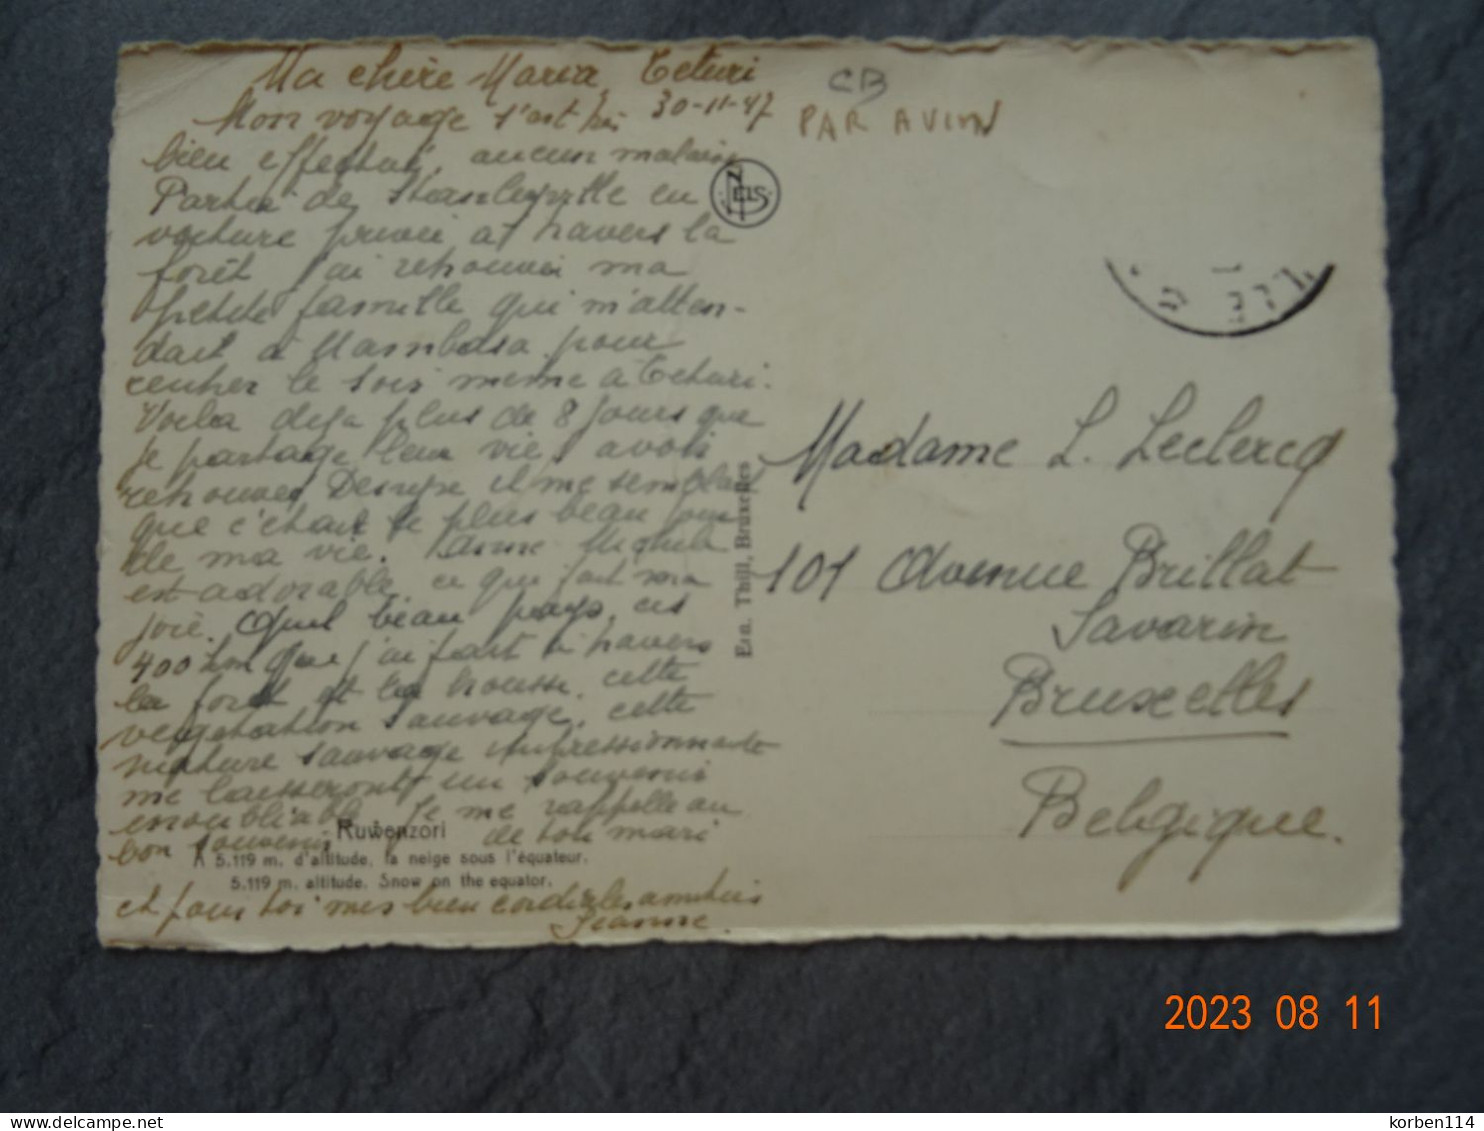 Ma chère Maria, Teturi
30-11-47
Mon voyage s'est très
bien effectué, aucun malaise
Partie de Stanleyville en
voiture privée à travers la
forêt j'ai retrouvé ma
petite famille qui m'atten-
dait à Mambasa pour
rentrer le soir même à Teturi.
Voila deja plus de 8 jours que
je partage leur vie, avoir
retrouvé il me semblait
que c'était le plus beau jour
de ma vie.
est adorable, ce qui fait ma
joie. Quel beau pays, ces
400 km que j'ai fait à travers
la forêt et la brousse, cette
vegetation sauvage, cette
nature sauvage impressionnante
me laisseront un souvenir
inoubliable. Je me rappelle au
bon souvenir de ton mari
et pour toi mes bien cordiales amitiés
Jeanne.
Ruwenzori
A 5.119 m. d'altitude, la neige sous l'équateur.
5.119 m. altitude. Snow on the equator.
NELS
Ern. Thill, Bruxelles
CB
PAR AVION
Madame L. Leclercq
101 Avenue Brillat
Savarin
Bruxelles
Belgique.
2023 08 11
delcampe.net
korben114